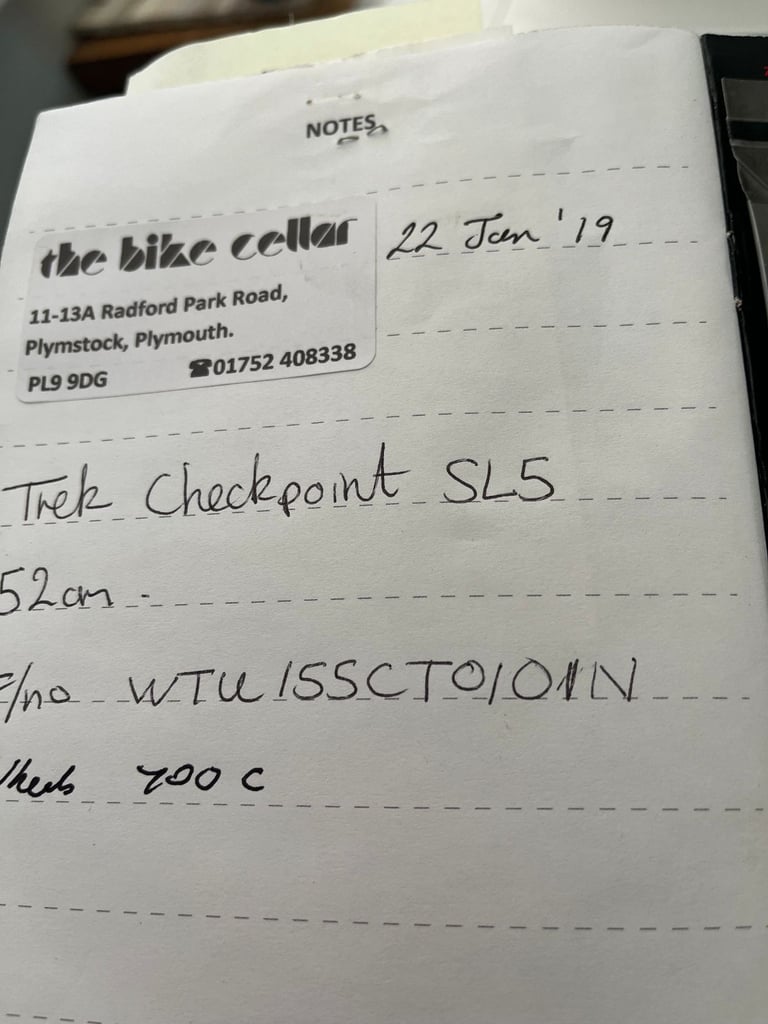 NOTES
the bike cellar
22 Jan '19
11-13A Radford Park Road,
Plymstock, Plymouth.
PL9 9DG ☎01752 408338
Trek Checkpoint SL5
52cm -
F/no WTU155CT0101N
Wheels 700 C